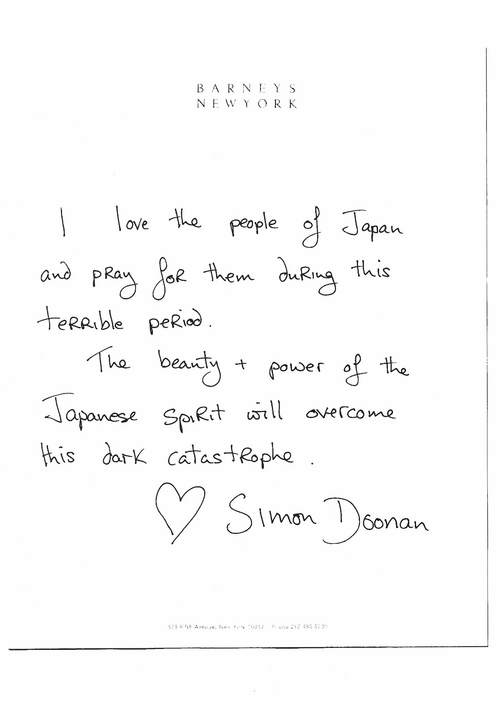 BARNEYS
NEWYORK
I love the people of Japan
and pray for them during this
terrible period.
The beauty + power of the
Japanese spirit will overcome
this dark catastrophe.
Simon Doonan
New York